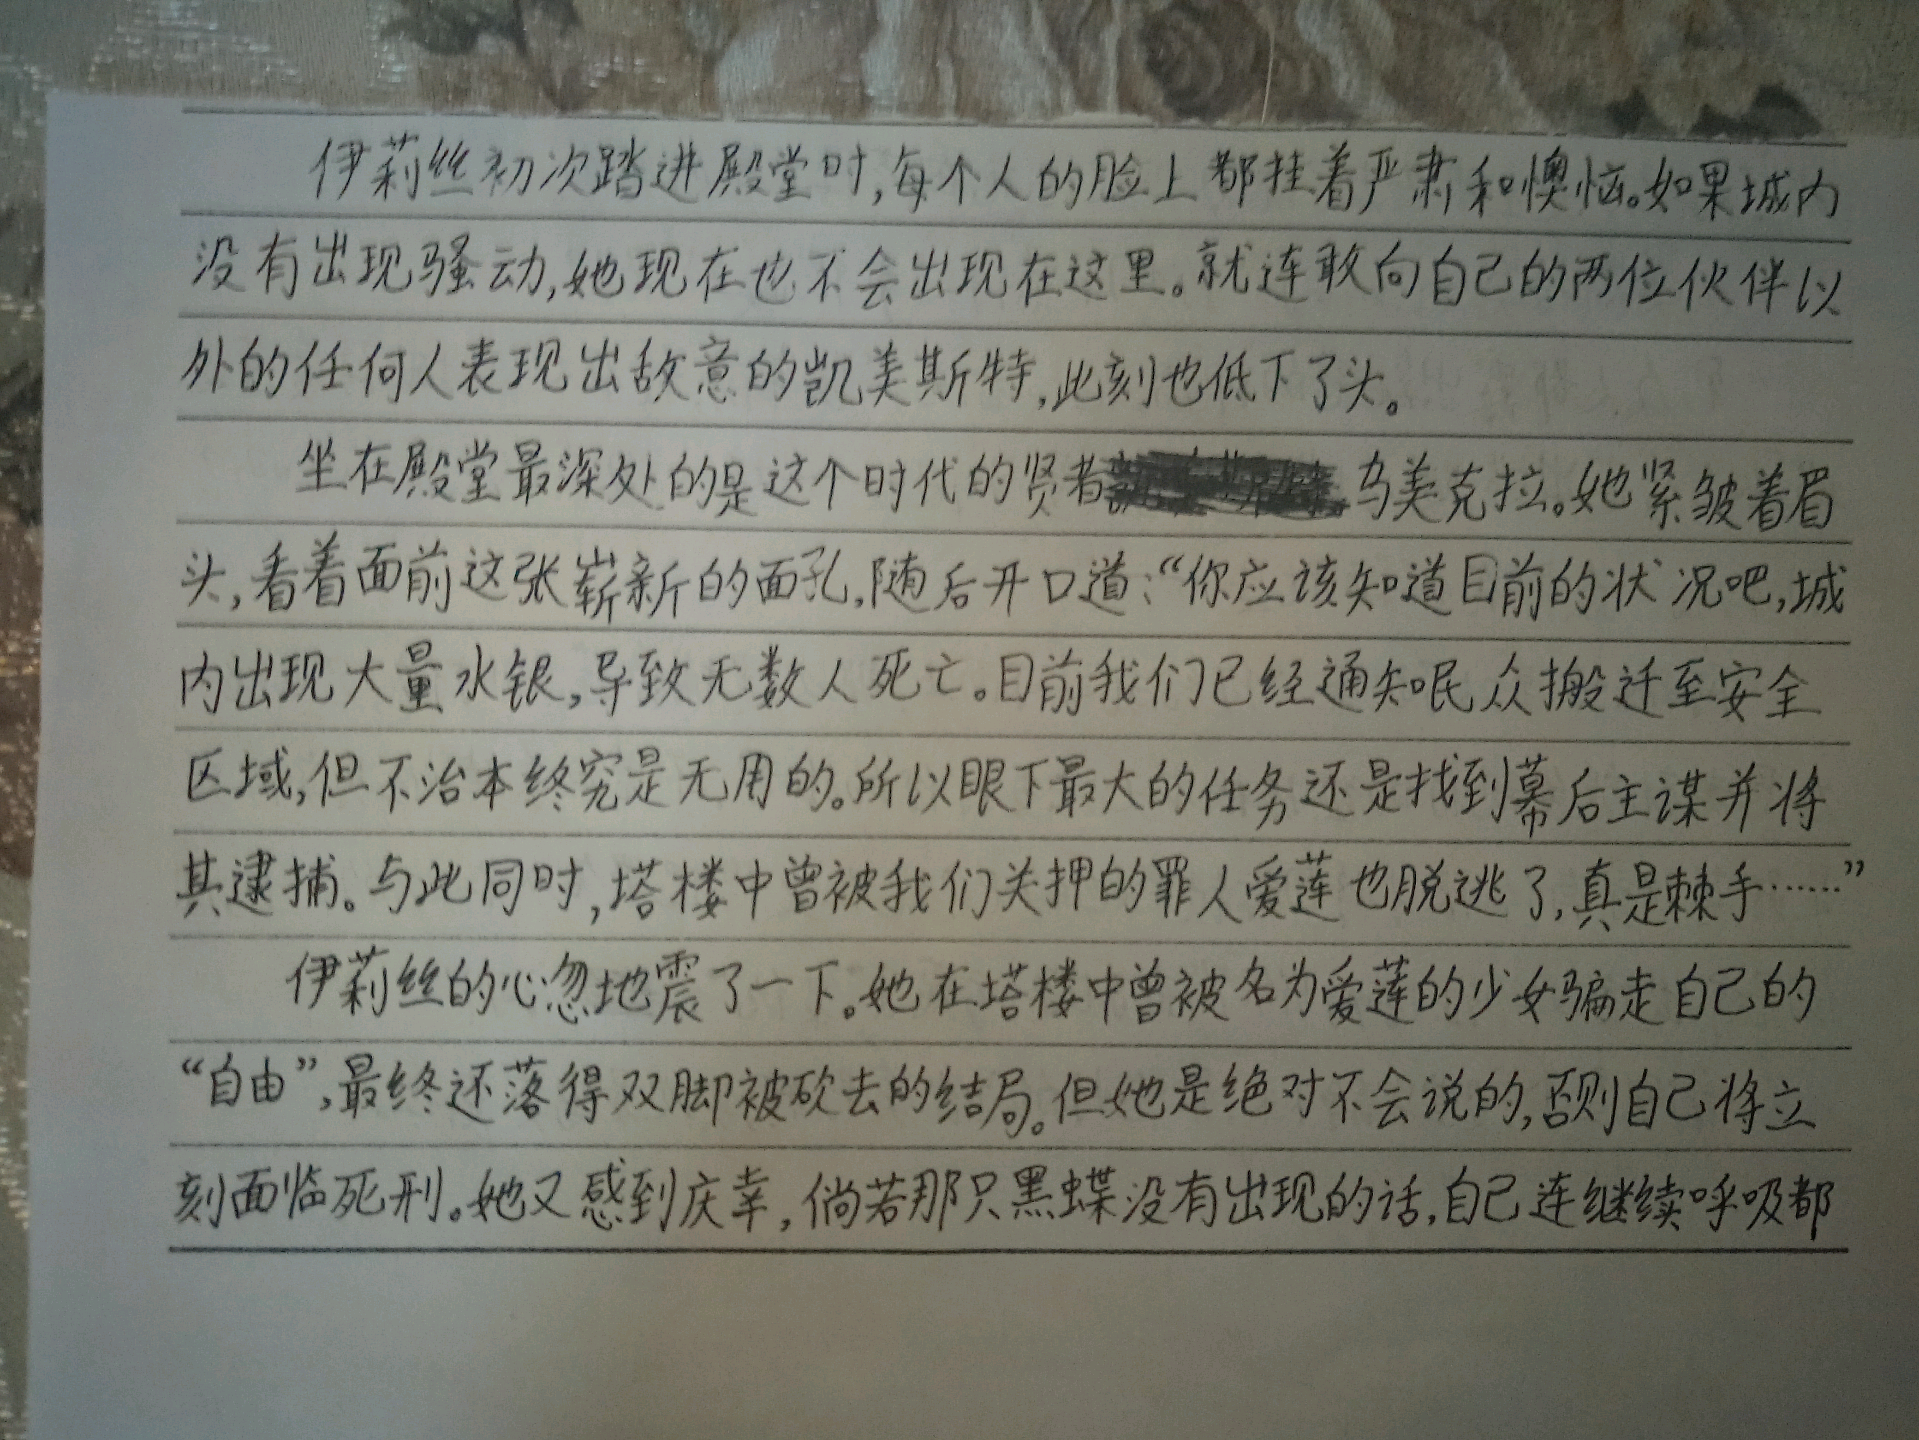 伊莉丝初次踏进殿堂时,每个人的脸上都挂着严肃和懊恼。如果城内
没有出现骚动,她现在也不会出现在这里。就连敢向自己的两位伙伴以
外的任何人表现出敌意的凯美斯特,此刻也低下了头。
坐在殿堂最深处的是这个时代的贤者乌美克拉。她紧皱着眉
头,看着面前这张崭新的面孔,随后开口道:“你应该知道目前的状况吧,城
内出现大量水银,导致无数人死亡。目前我们已经通知民众搬迁至安全
区域,但不治本终究是无用的。所以眼下最大的任务还是找到幕后主谋并将
其逮捕。与此同时,塔楼中曾被我们关押的罪人爱莲也脱逃了,真是棘手……”
伊莉丝的心忽地震了一下。她在塔楼中曾被名为爱莲的少女骗走自己的
“自由”,最终还落得双脚被砍去的结局。但她是绝对不会说的,否则自己将立
刻面临死刑。她又感到庆幸,倘若那只黑蝶没有出现的话,自己连继续呼吸都